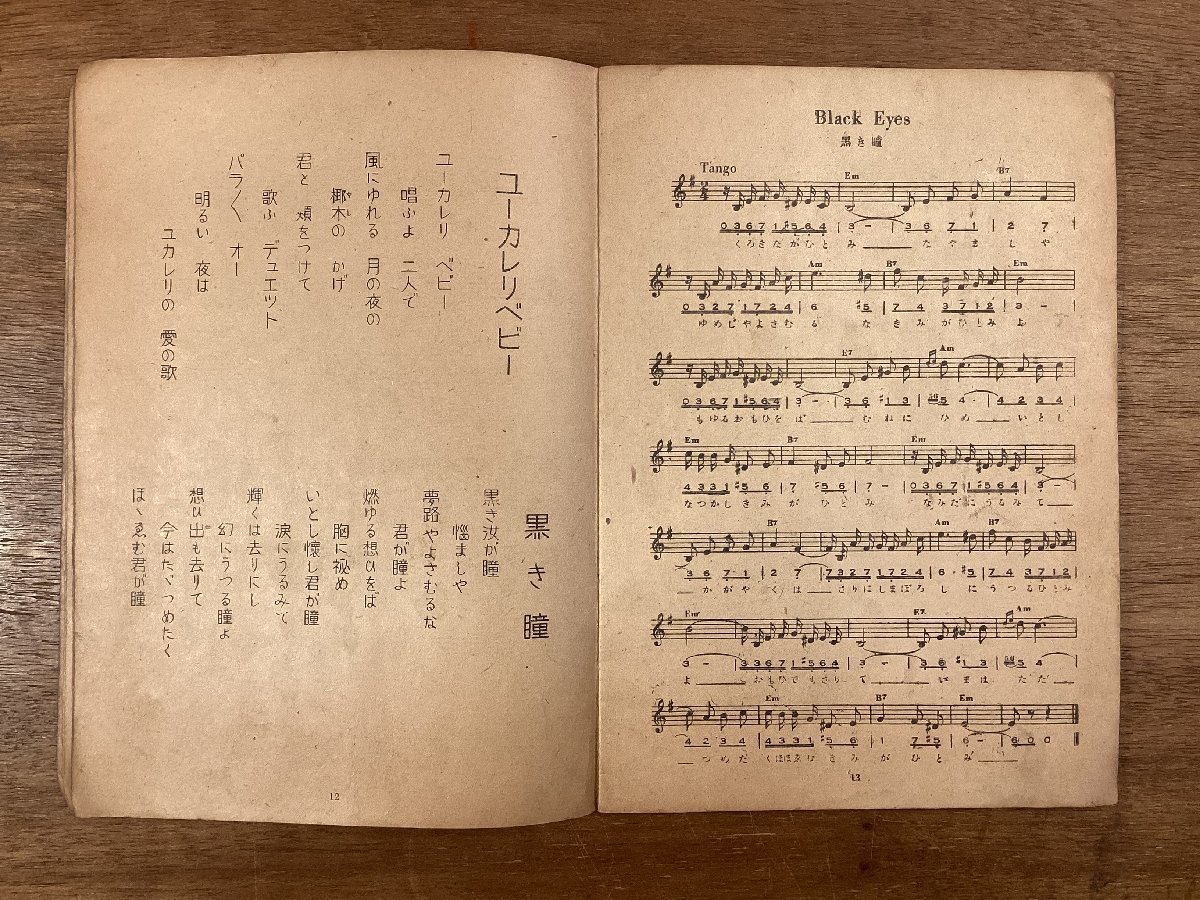 ユーカレリベビー
ユーカレリ ベビー
唱ふよ 二人で
風にゆれる 月の夜の
椰木の かげ
君と 頬をつけて
歌ふ デュエット
パラ〳〵 オー
明るい 夜は
ユカレリの 愛の歌
黒き瞳
黒き汝が瞳
惱ましや
夢路やよさむるな
君が瞳よ
燃ゆる想ひをば
胸に秘め
いとし懐し君が瞳
涙にうるみて
輝くは去りにし
幻にうつる瞳よ
想ひ出も去りて
今はたゞつめたく
ほゝゑむ君が瞳
12
Black Eyes
黒き瞳
Tango
Em B7
0 3 6 7 1 #5 6 4 | 3 - | 3 6 7 1 | 2 7
くろきながひとみ たやましや
Am B7 Em
0 3 2 7 1 7 2 4 | 6 #5 | 7 4 3 7 1 2 | 3 -
ゆめぢやよさむる なきみがひとみよ
E7 Am
0 3 6 7 1 #5 6 4 | 3 - | 3 6 #1 3 | 4 - | 4 2 3 4
もゆるおもひをば むねに ひめ いとし
Em B7 Em
4 3 3 1 #5 6 | 7 #5 6 | 7 - | 0 3 6 7 1 #5 6 4 | 3 -
なつかしきみが ひとみ なみだにうるみて
B7 Am B7
3 6 7 1 | 2 7 | 7 3 2 7 1 7 2 4 | 6 - #5 | 7 4 3 7 1 2
かがやくは さりにしまぼろし にうつるひとみ
Em E7 Am
3 - | 3 3 6 7 1 #5 6 4 | 3 - | 3 6 #1 3 | 5 4
よ おもひでもさりて いまは ただ
Em B7 Em
4 2 3 4 | 4 3 3 1 #5 6 | 1 7 #5 | 6 - | 6 0 0
つめたくほほゑむきみがひとみ
13